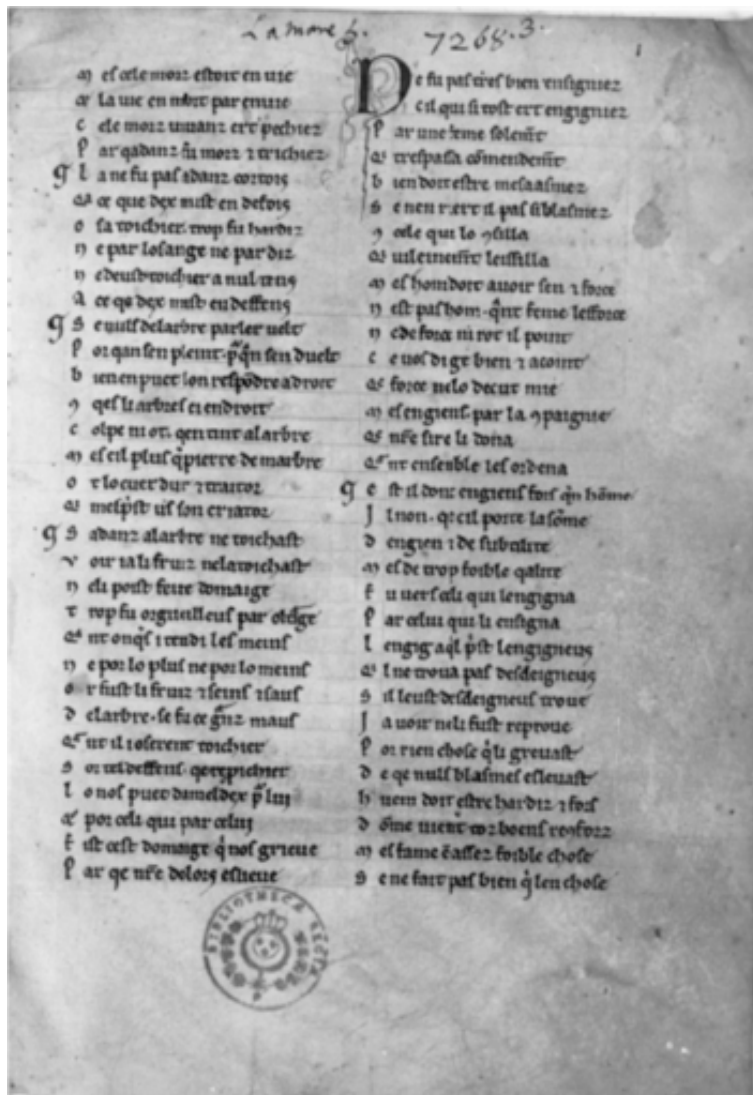 Lamare
7268.3.
1
M es cele morz estoit en vie
la vie en mort par envie
C ele morz vivanz ert pechiez
P ar q adanz fu morz 7 trichiez
L a ne fu pas adanz cortois
ce que dex mist en defois
O sa toichier trop fu hardiz
N e par losange ne par diz
N e deust toichier a nul tens
A ce qe dex mist en deffens
S e nuls de larbre parler velt
P or qan sen pleint
B ien en puet lon respondre a droit
qes li arbres ci endroit
C olpe ni ot qen tint a larbre
M es cil plus q pierre de marbre
O t lo cuer dur 7 traitor
son criator
S adanz a larbre ne toichast
V oir ia li fruiz ne latoichast
N e li poist feire domaige
T rop fu orgueilleus par
nt onqs i tendi les meins
N e por lo plus ne por lo meins
O r fust li fruiz 7 seins 7 saus
D e larbre se fu ce granz maus
nt il i oserent toichier
S or tel deffens
L o nos puet dameldex p lui
por celi qui par celui
F ist cest domaige q nos grieve
P ar qe nre dolors eslieve
N e fu pas tres bien ensigniez
C il qui si tost ert engigniez
P ar une feme solemt
trespasa comendemt
B ien doit estre mesaasmez
S e nen rert il pas si blasmez
9 cele qui lo 9silla
vileinemt lessilla
M es hom doit avoir sen 7 force
N est pas hom qnt feme lesforce
N e de force ni rot il point
C e vos di ge bien 7 acoint
force ne lo decut mie
M es engiens par la 9paignie
nre sire li dona
nt ensenble les ordena
E st il donc engiens fors qn home
I l non qe cil porte la some
D engien 7 de subtilite
M es de trop foible qalite
F u vers celi qui lengigna
P ar celui qui li ensigna
L engig aql pst lengigneus
l ne trova pas desdeigneus
S il leust desdeigneus trove
I a voir ne li fust reprove
P or rien chose q li grevast
D e qe nuls blasmes eslevast
H uem doit estre hardiz 7 fors
D ome vient toz boens
M es fame e assez foible chose
S e ne fait pas bien q len chose
BIBLIOTHECA REGIA